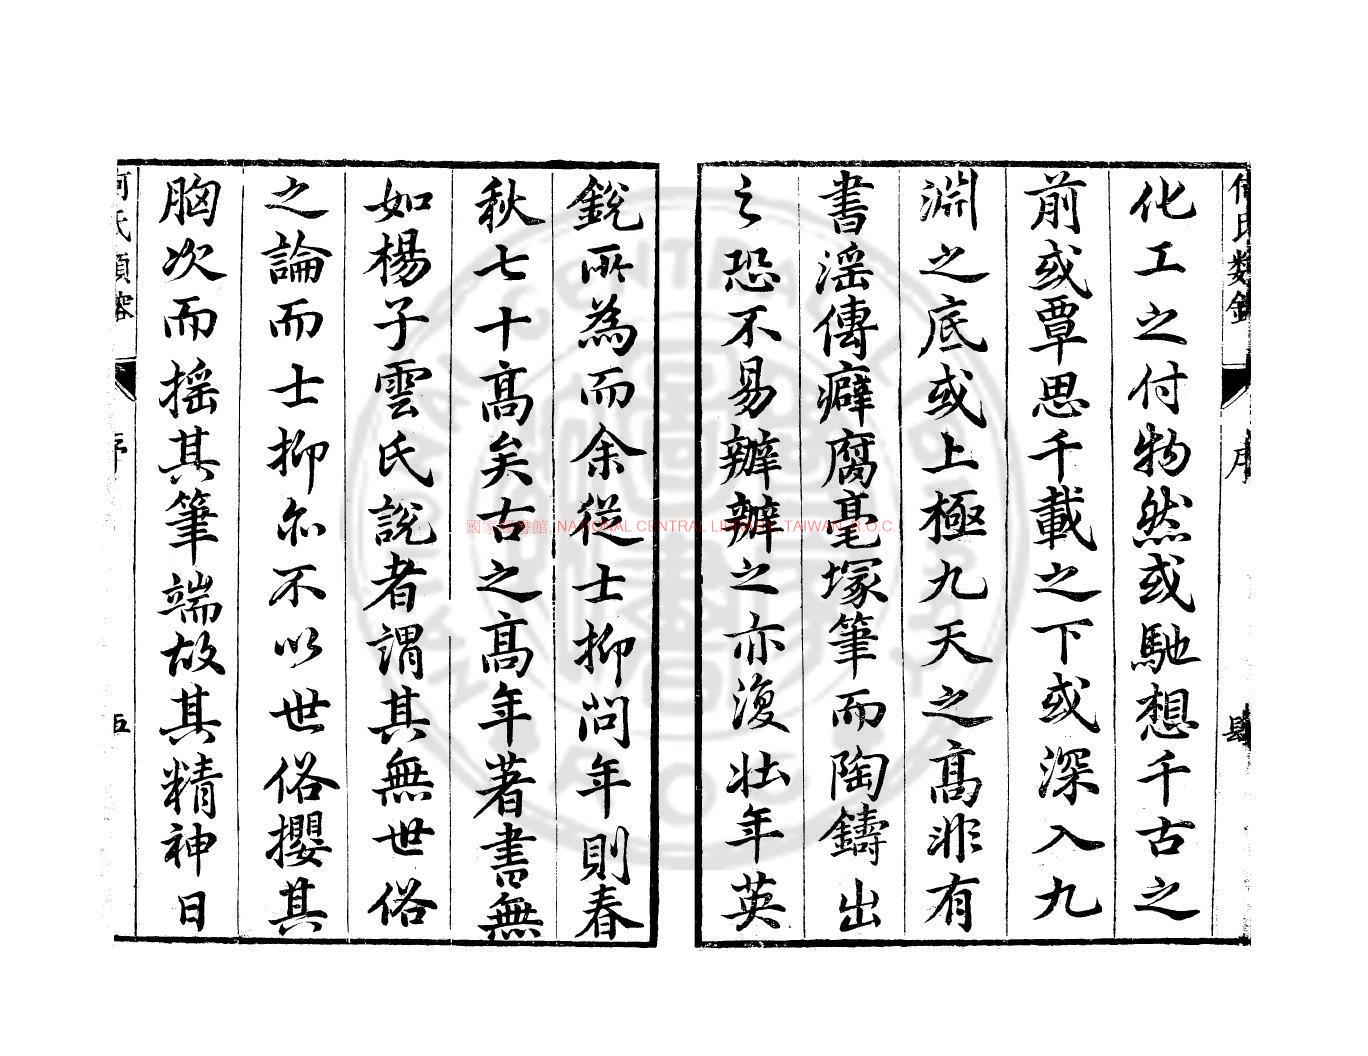 化工之付物然或馳想千古之
前或覃思千載之下或深入九
淵之底或上極九天之髙非有
書滛傳癖腐毫塚筆而陶鑄出
之恐不易辦辦之亦復壯年英
銳所為而余從士抑問年則春
秋七十髙矣古之髙年著書無
如楊子雲氏說者謂其無世俗
之論而士抑尒不以世俗攖其
胸次而揺其筆端故其精神日
何氏類鎔
序
五
序
肆
國家圖書館, NATIONAL CENTRAL LIBRARY, TAIWAN, R.O.C.